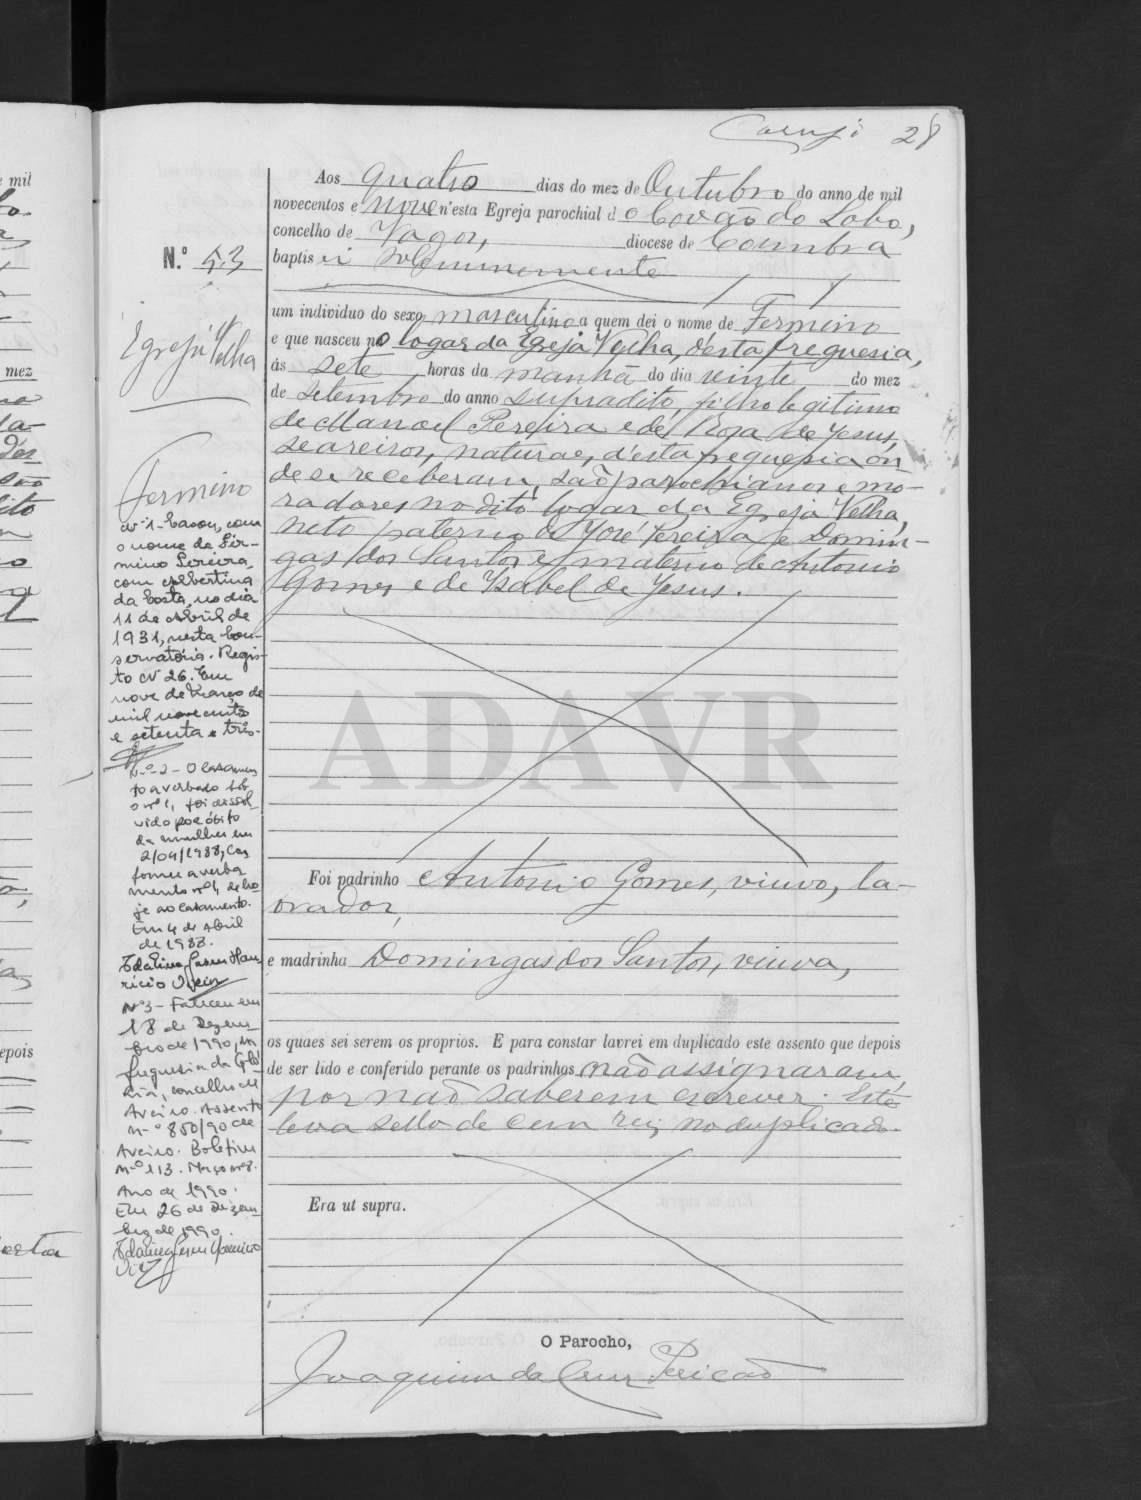 28
Aos quatro dias do mez de Outubro do anno de mil
novecentos e nove n'esta Egreja parochial do Covão do Lobo,
concelho de Vagos, diocese de Coimbra
baptisei solemnemente
N.º 53
Egreja Velha
um individuo do sexo masculino a quem dei o nome de Fermino
e que nasceu no logar da Egreja Velha, d'esta freguesia,
ás sete horas da manhã do dia vinte do mez
de setembro do anno supradito, filho legitimo
de Manoel Pereira e de Rosa de Jesus,
seareiros, naturaes, d'esta freguesia on
de se receberam, são parochianos e mo-
radores no dito logar da Egreja Velha,
neto paterno de José Pereira e Domin-
gas dos Santos e materno de Antonio
Gomes e de Isabel de Jesus.
Fermino
Nº 1 - Casou, com
o nome de Fir-
mino Pereira,
com Albertina
da Costa, no dia
11 de Abril de
1931, nesta Con-
servatória. Regis-
to Nº 26. Em
nove de Março de
mil novecentos
e setenta e três.
N.º 2 - O casamen
to averbado sob
o nº 1, foi dissol-
vido por óbito
da mulher em
2/04/1988, con
forme averba
mento nº 4 de ho-
je ao casamento.
Em 4 de Abril
de 1988.
Nº 3 - Faleceu em
18 de Dezem-
bro de 1990, na
freguesia da Gló-
ria, concelho de
Aveiro. Assento
n.º 850/90 de
Aveiro. Boletim
nº 113. Março nº 8.
Ano de 1990.
Em 26 de Dezem-
bro de 1990.
ADAVR
Foi padrinho Antonio Gomes, viuvo, la-
vrador,
e madrinha Domingas dos Santos, viuva,
os quaes sei serem os proprios. E para constar lavrei em duplicado este assento que depois
de ser lido e conferido perante os padrinhos não assignaram
por não saberem escrever. Este
leva sello de cem reis no duplicado.
Era ut supra.
O Parocho,
Joaquim da Cruz Pericão